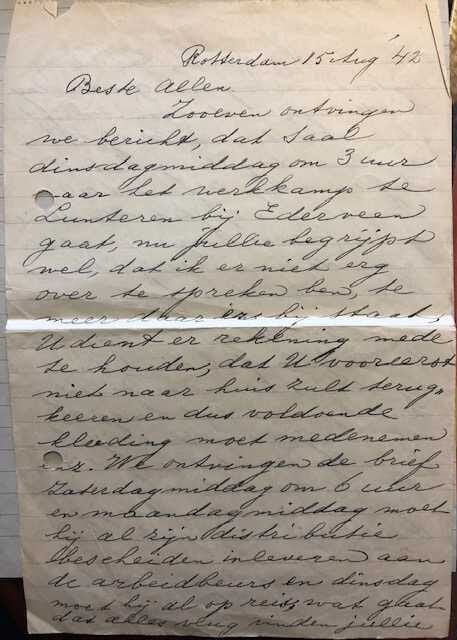 Rotterdam 15 Aug '42
Beste Allen
Zooeven ontvingen
we bericht, dat Saal
dinsdagmiddag om 3 uur
naar het werkkamp te
Lunteren bij Ederveen
gaat, nu jullie begrijpt
wel, dat ik er niet erg
over te spreken ben, te
meer daar er bij staat,
U dient er rekening mede
te houden, dat U vooreerst
niet naar huis zult terug„
keeren en dus voldoende
kleeding moet medenemen
enz. We ontvingen de brief
Zaterdagmiddag om 6 uur
en maandagmiddag moet
hij al zijn distributie
bescheiden inleveren aan
de arbeidbeurs en dinsdag
moet hij al op reis, wat gaat
dat alles vlug vinden jullie